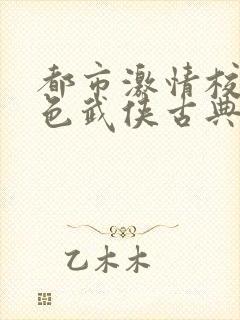 都市激情校
色武侠古典
乙木木